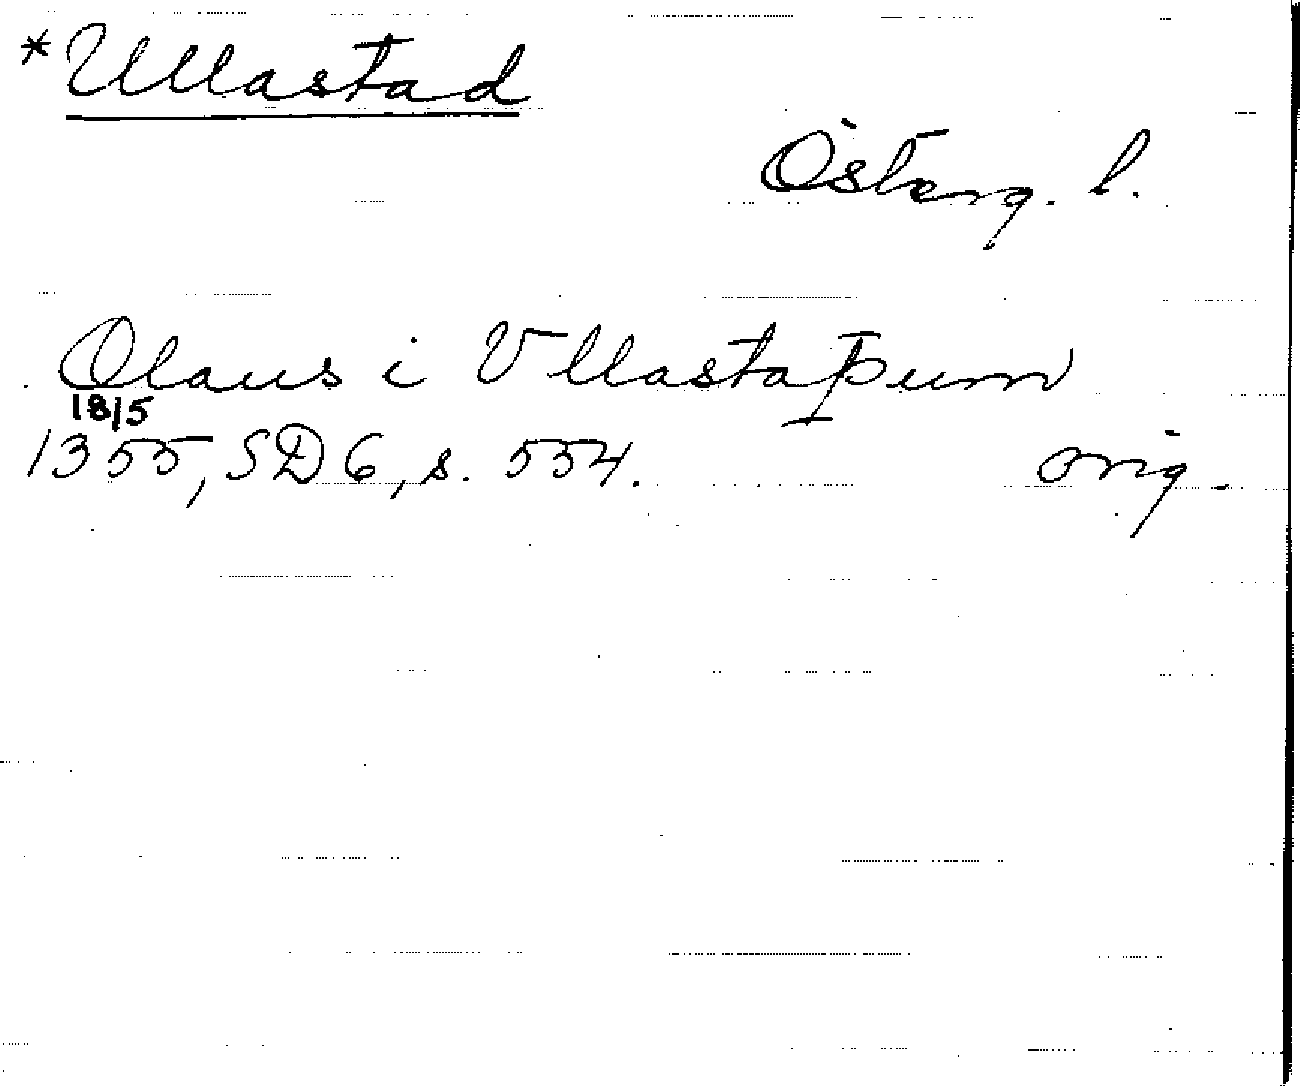 *Ullastad
Österg. l.
Olaus i Vllastaþum
18/5
1355, SD 6, s. 554. orig.